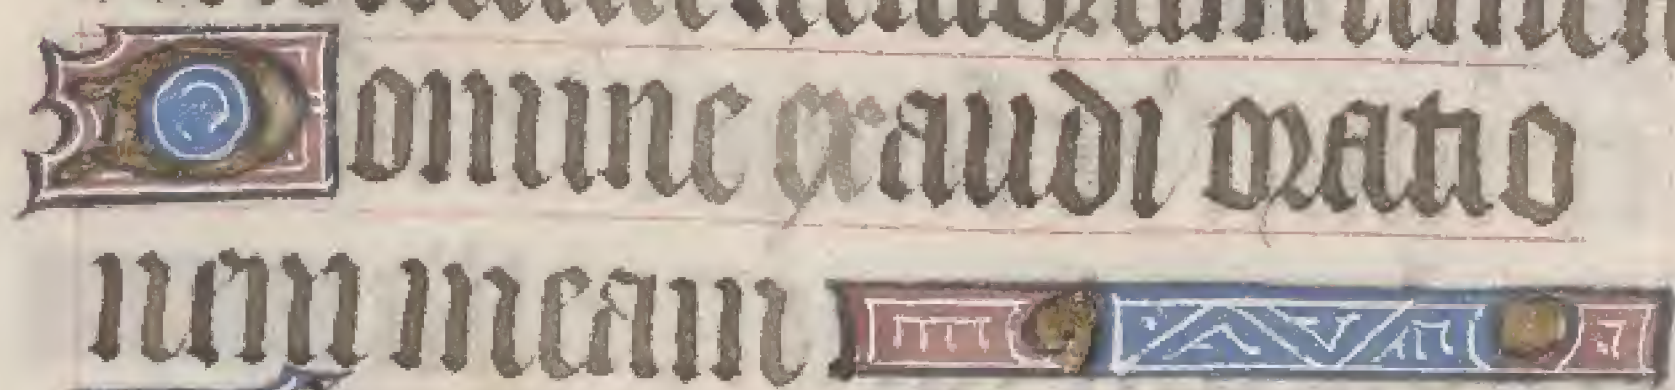 Domine exaudi oratio
nem meam